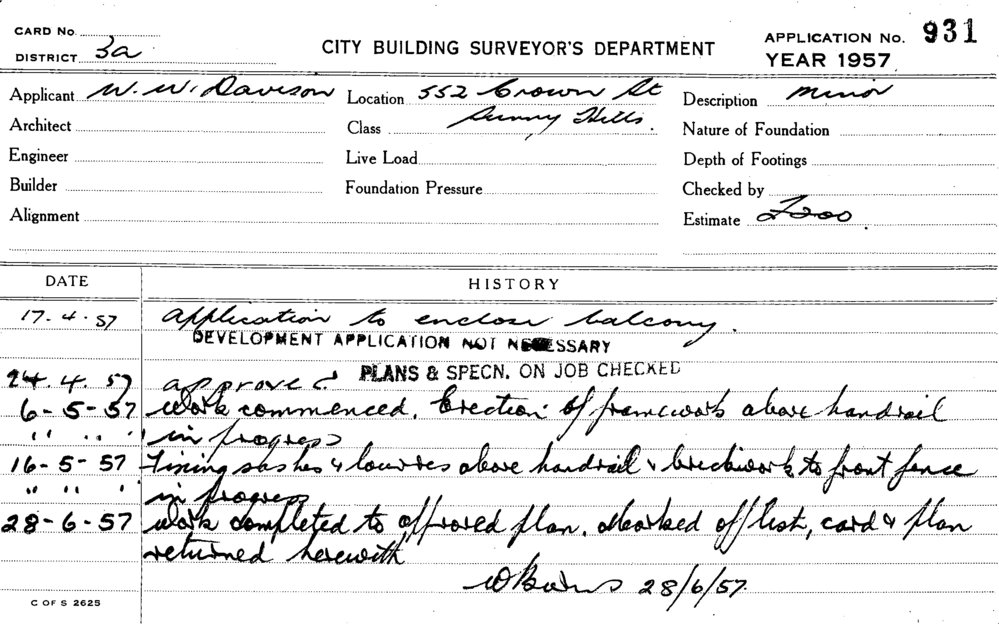 CARD No.
DISTRICT 3a
CITY BUILDING SURVEYOR'S DEPARTMENT
APPLICATION No. 931
YEAR 1957
Applicant W. W. Davison Location 552 Crown St Description Minor
Architect Class Surry Hills. Nature of Foundation
Engineer Live Load Depth of Footings
Builder Foundation Pressure Checked by
Alignment Estimate £200
DATE HISTORY
17.4.57 Application to enclose balcony.
DEVELOPMENT APPLICATION NOT NECESSARY
24.4.57 approved PLANS & SPECN. ON JOB CHECKED
6-5-57 Work commenced. Erection of framework above handrail
" " " in progress
16-5-57 Fixing sashes & louvres above handrail & brickwork to front fence
" " " in progress
28-6-57 Work completed to approved plan. Marked off list, card & plan
returned herewith
28/6/57.
C OF S 2625